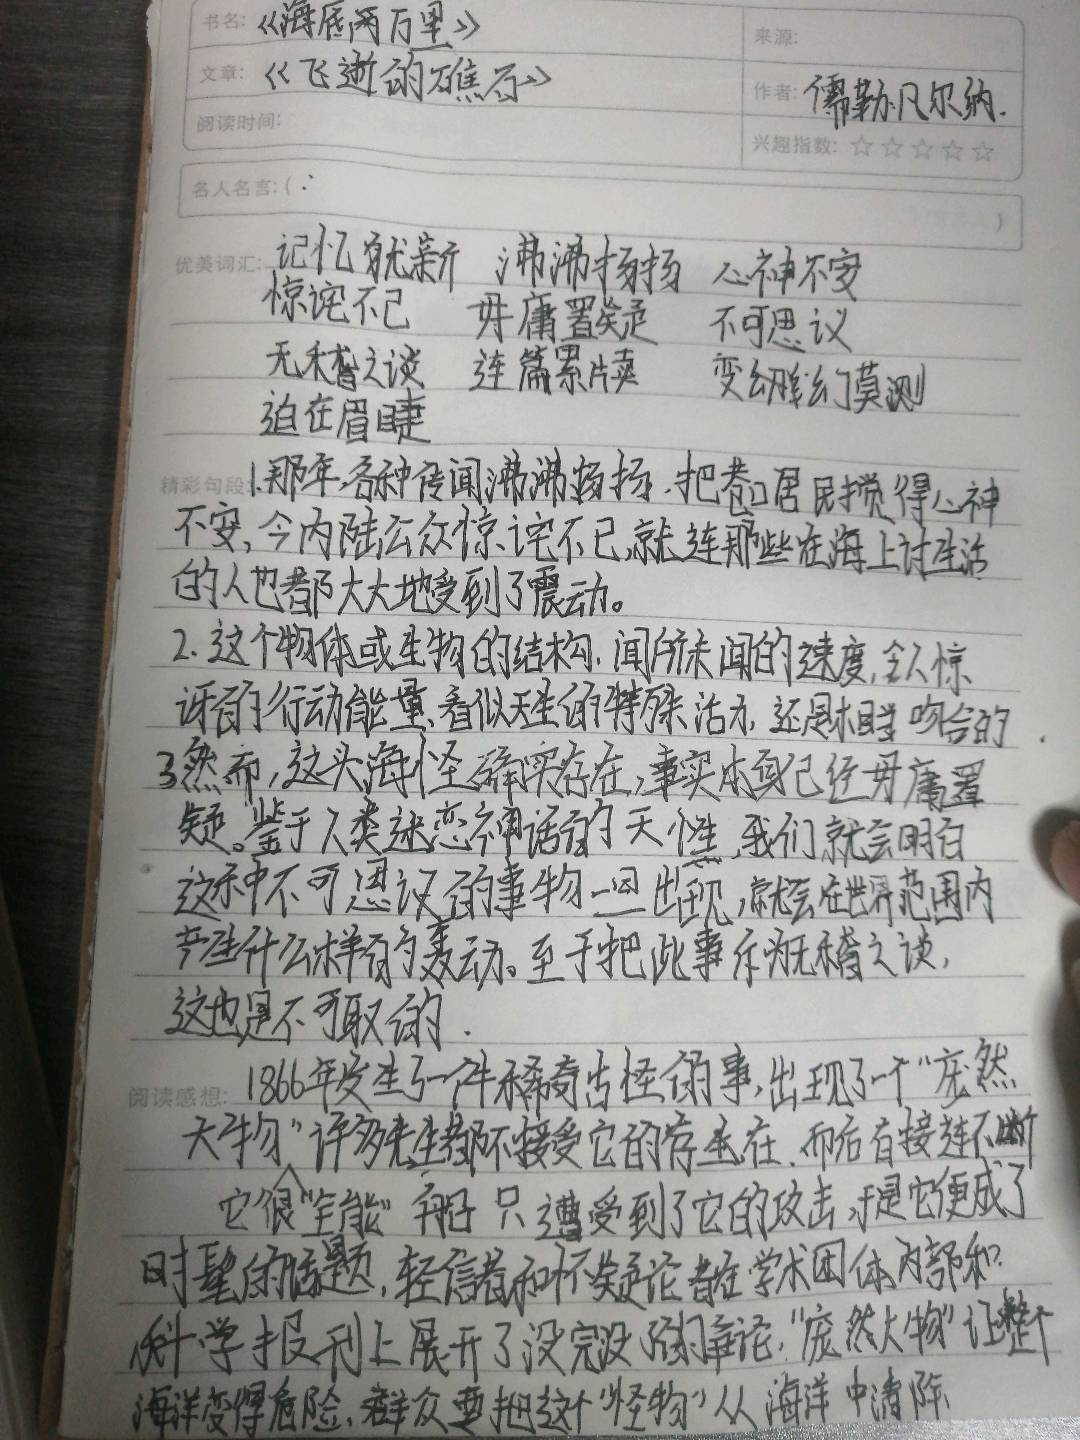 书名: 《海底两万里》
来源:
文章: 《飞逝的礁石》
作者: 儒勒·凡尔纳.
阅读时间:
兴趣指数: ☆☆☆☆☆
名人名言: ( )
优美词汇: 记忆犹新 沸沸扬扬 心神不安
惊诧不已 毋庸置疑 不可思议
无稽之谈 连篇累牍 变幻莫测
迫在眉睫
精彩句段: 1.那年,各种传闻沸沸扬扬,把巷口居民搅得心神
不安,令内陆公众惊诧不已,就连那些在海上讨生活
的人也都大大地受到了震动。
2.这个物体或生物的结构,闻所未闻的速度,令人惊
讶的行动能量、看似天生的特殊活力,还是相当吻合的.
3然而,这头海怪确实存在,事实本身已经毋庸置
疑。鉴于人类迷恋神话的天性,我们就会明白
这种不可思议的事物一旦出现,就会在世界范围内
产生什么样的轰动。至于把此事斥为无稽之谈,
这也是不可取的.
阅读感想: 1866年发生了一件稀奇古怪的事,出现了一个“庞然
大物”许多先生都不接受它的存在,而后有接连不断
它很“全能” 船只遭受到了它的攻击,于是它便成了
时髦的话题,轻信者和怀疑论者在学术团体内部和
科学报刊上展开了没完没了的争论,“庞然大物”让整个
海洋变得危险,群众要把这个“怪物”从海洋中清除